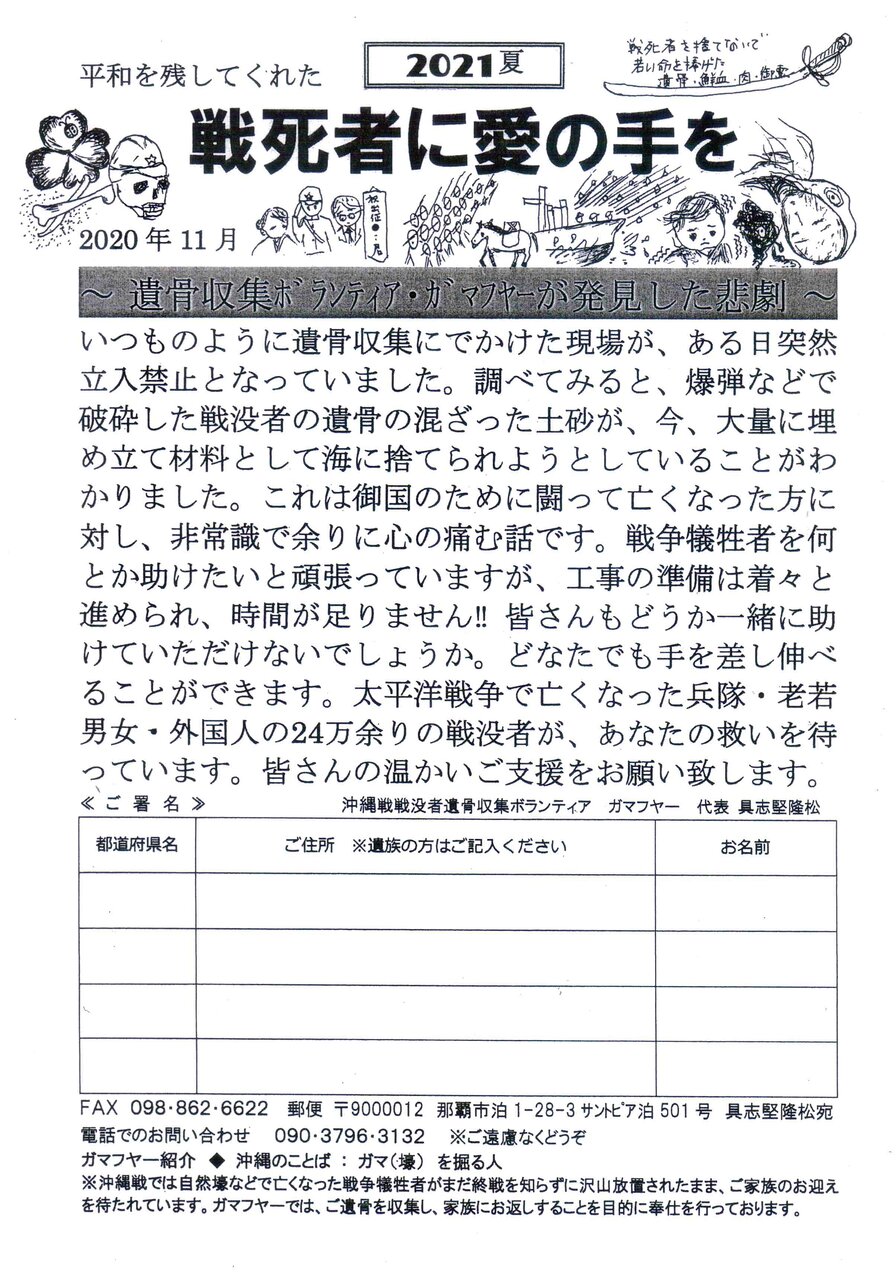 2021夏
戦死者を捨てないで
若い命を捧げた
遺骨・鮮血・肉・御霊
平和を残してくれた
戦死者に愛の手を
祝出征
2020年11月
～ 遺骨収集ﾎﾞﾗﾝﾃｨｱ・ｶﾞﾏﾌﾔｰが発見した悲劇 ～
いつものように遺骨収集にでかけた現場が、ある日突然
立入禁止となっていました。調べてみると、爆弾などで
破砕した戦没者の遺骨の混ざった土砂が、今、大量に埋
め立て材料として海に捨てられようとしていることがわ
かりました。これは御国のために闘って亡くなった方に
対し、非常識で余りに心の痛む話です。戦争犠牲者を何
とか助けたいと頑張っていますが、工事の準備は着々と
進められ、時間が足りません‼ 皆さんもどうか一緒に助
けていただけないでしょうか。どなたでも手を差し伸べ
ることができます。太平洋戦争で亡くなった兵隊・老若
男女・外国人の24万余りの戦没者が、あなたの救いを待
っています。皆さんの温かいご支援をお願い致します。
≪ご署名≫ 沖縄戦戦没者遺骨収集ボランティア ガマフヤー 代表 具志堅隆松
都道府県名 ご住所 ※遺族の方はご記入ください お名前
FAX 098･862･6622 郵便 〒9000012 那覇市泊1-28-3 ｻﾝﾄﾋﾟｱ泊501号 具志堅隆松宛
電話でのお問い合わせ 090･3796･3132 ※ご遠慮なくどうぞ
ガマフヤー紹介 ◆ 沖縄のことば ： ガマ（壕） を掘る人
※沖縄戦では自然壕などで亡くなった戦争犠牲者がまだ終戦を知らずに沢山放置されたまま、ご家族のお迎え
を待たれています。ガマフヤーでは、ご遺骨を収集し、家族にお返しすることを目的に奉仕を行っております。